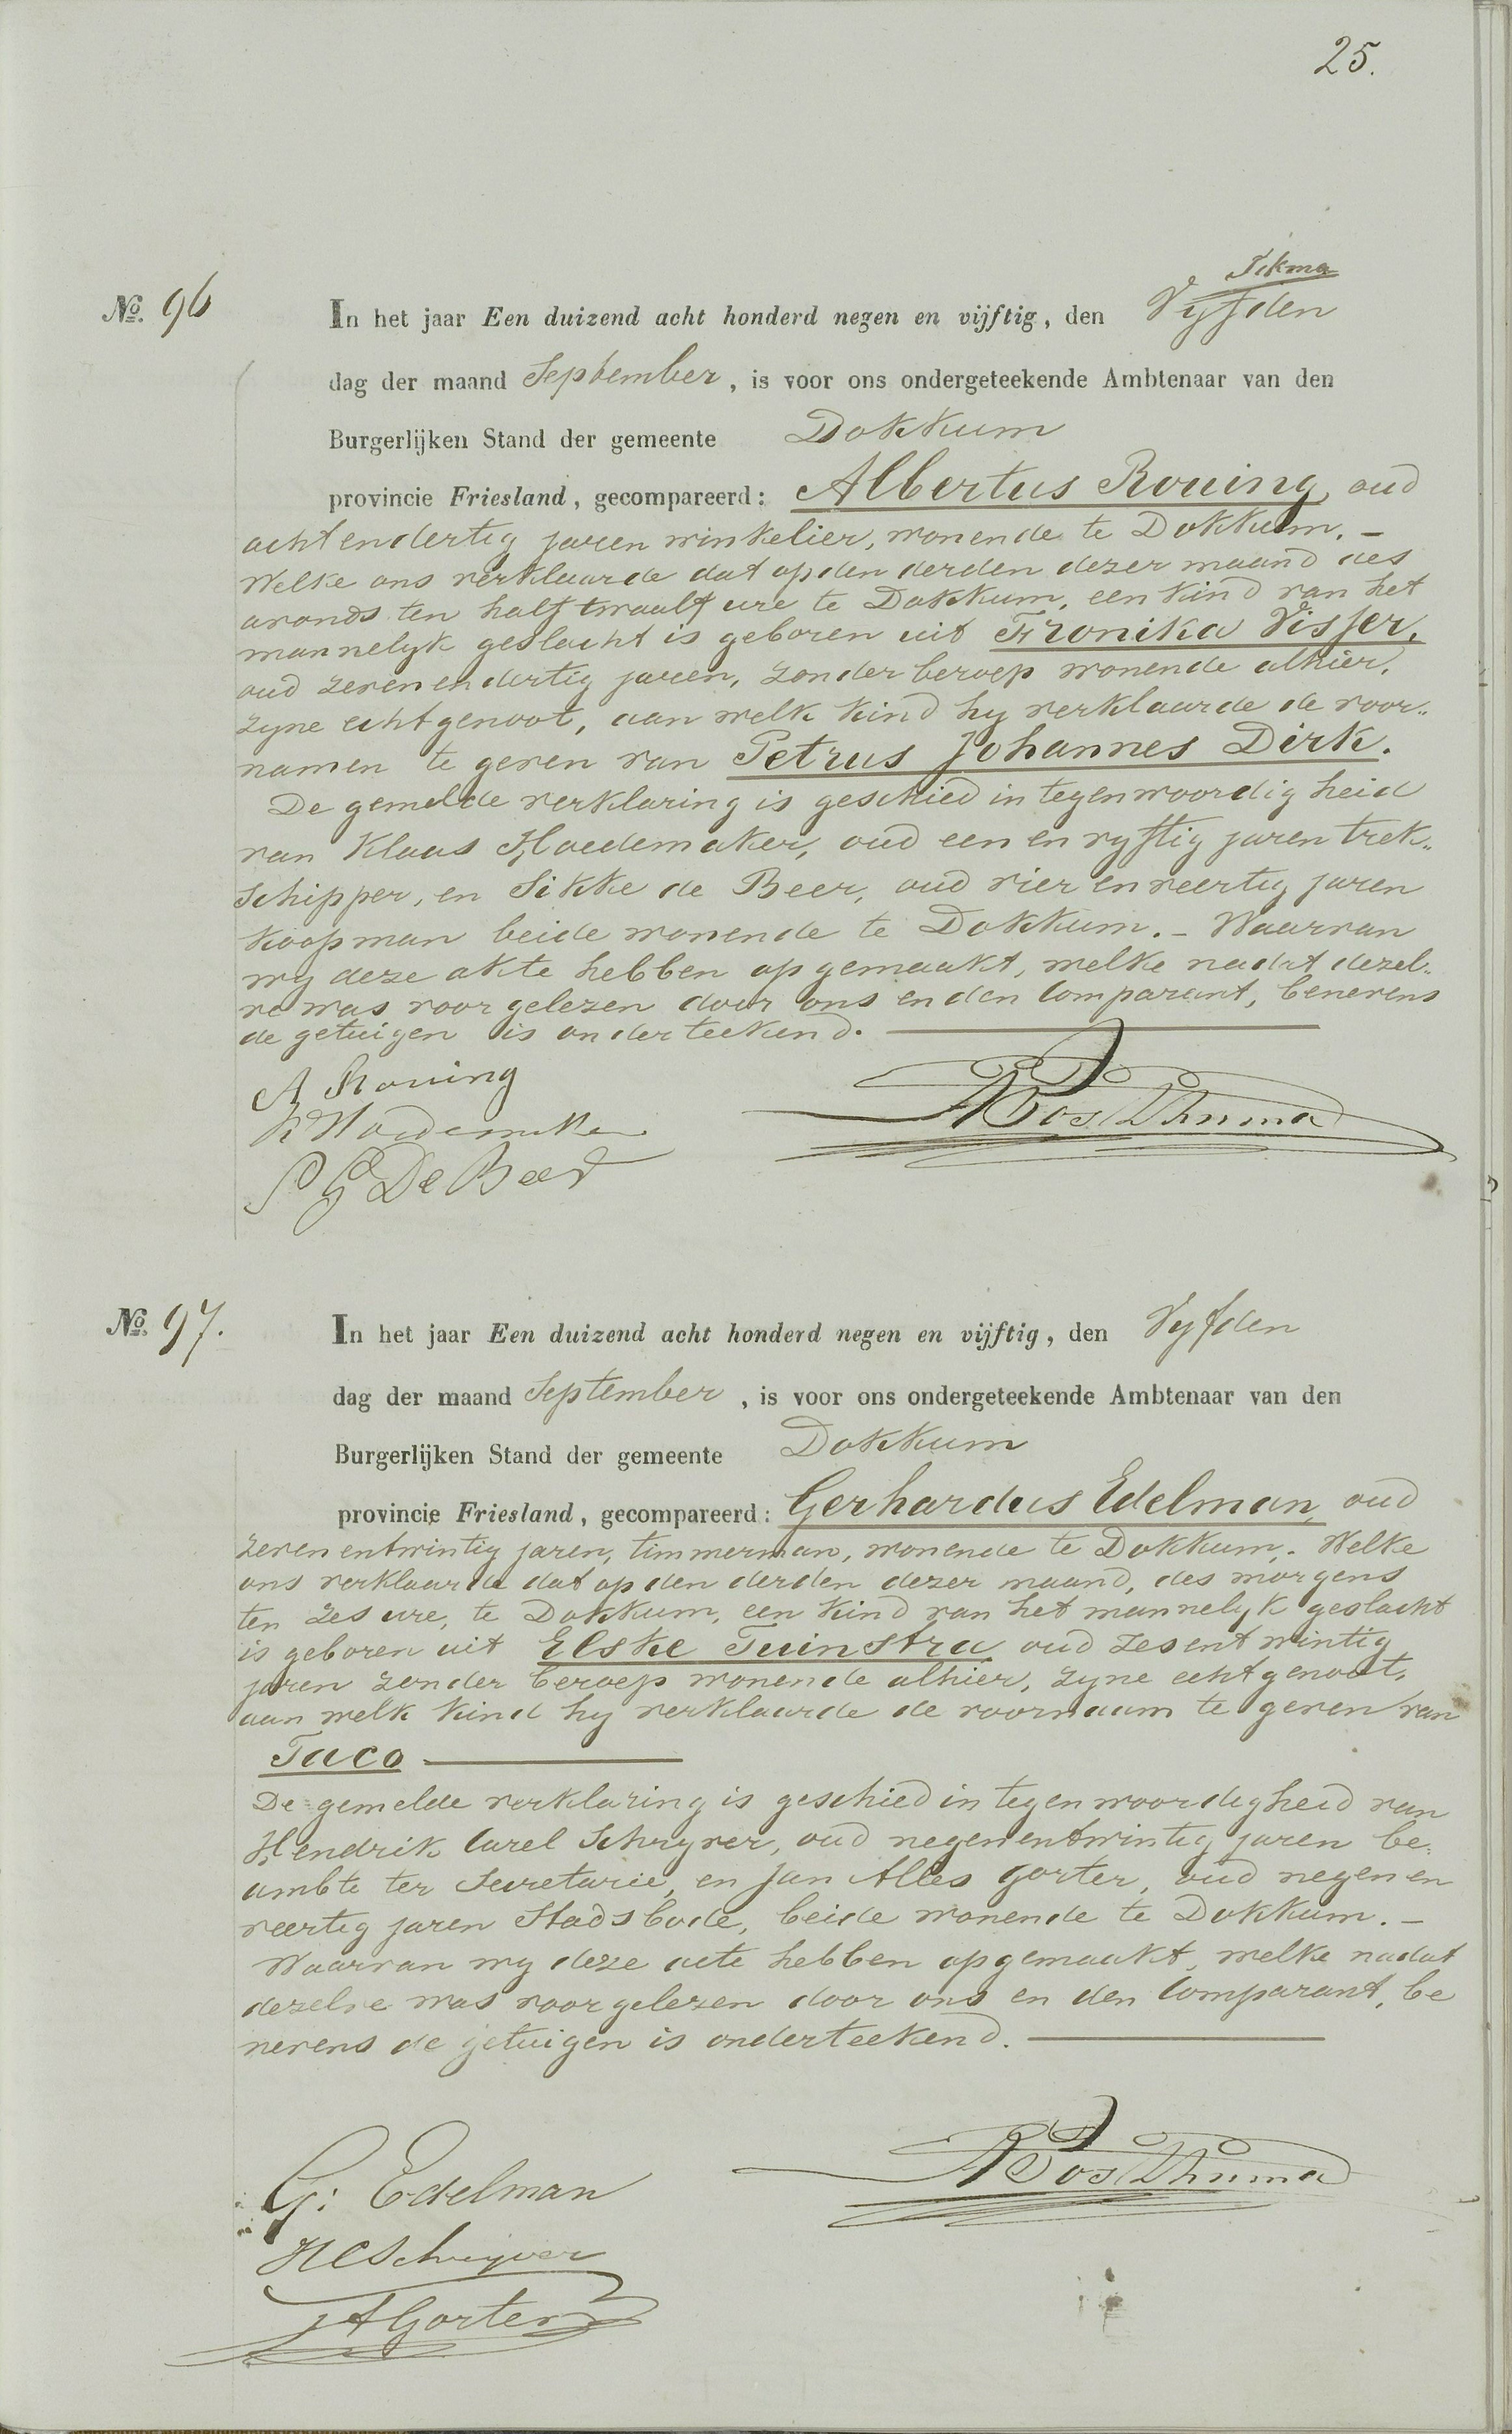 25.
Tekma
No. 96
In het jaar Een duizend acht honderd negen en vijftig, den Vyfden
dag der maand September, is voor ons ondergeteekende Ambtenaar van den
Burgerlijken Stand der gemeente Dokkum
provincie Friesland, gecompareerd: Albertus Rouing, oud
achtendertig jaren winkelier, wonende te Dokkum. –
Welke ons verklaarde dat op den derden dezer maand des
avonds ten half twaalf ure te Dokkum, een kind van het
mannelyk geslacht is geboren uit Fronika Visser,
oud zevenendertig jaren, zonder beroep wonende alhier,
zyne echtgenoot, aan welk kind hy verklaarde de voor„
namen te geven van Petrus Johannes Dirk.
De gemelde verklaring is geschied in tegenwoordigheid
van Klaas Hoedemaker, oud een en vyftig jaren trek„
schipper, en Sikke de Beer, oud vier en veertig jaren
koopman beide wonende te Dokkum. – Waarvan
wy deze akte hebben opgemaakt, welke nadat dezel„
ve was voorgelezen door ons en den Comparant, benevens
de getuigen is onderteekend.
A Rouing
K Hoedemaker
S G De Beer
Posthuma
No. 97.
In het jaar Een duizend acht honderd negen en vijftig, den Vyfden
dag der maand September, is voor ons ondergeteekende Ambtenaar van den
Burgerlijken Stand der gemeente Dokkum
provincie Friesland, gecompareerd: Gerhardus Edelman, oud
zevenentwintig jaren, timmerman, wonende te Dokkum. Welke
ons verklaarde dat op den derden dezer maand, des morgens
ten zes ure, te Dokkum, een kind van het mannelyk geslacht
is geboren uit Elske Tuinstra oud zesentwintig
jaren zonder beroep wonende alhier, zyne echtgenoot,
aan welk kind hy verklaarde de voornaam te geven van
Taco
De gemelde verklaring is geschied in tegenwoordigheid van
Hendrik Carel Schryver, oud negenentwintig jaren be„
ambte ter Secretarie, en Jan Alles Gorter, oud negen en
veertig jaren Stadsbode, beide wonende te Dokkum. –
Waarvan wy deze acte hebben opgemaakt, welke nadat
dezelve was voorgelezen door ons en den Comparant, be
nevens de getuigen is onderteekend.
G: Edelman
HCSchryver
JAGorter
Posthuma